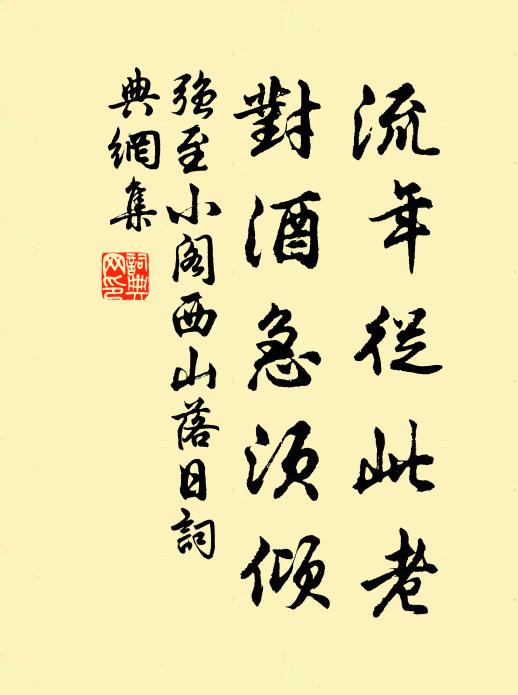 流年從此老
對酒急須傾
強至小閣西山落日詞
典網集
詞典
网印